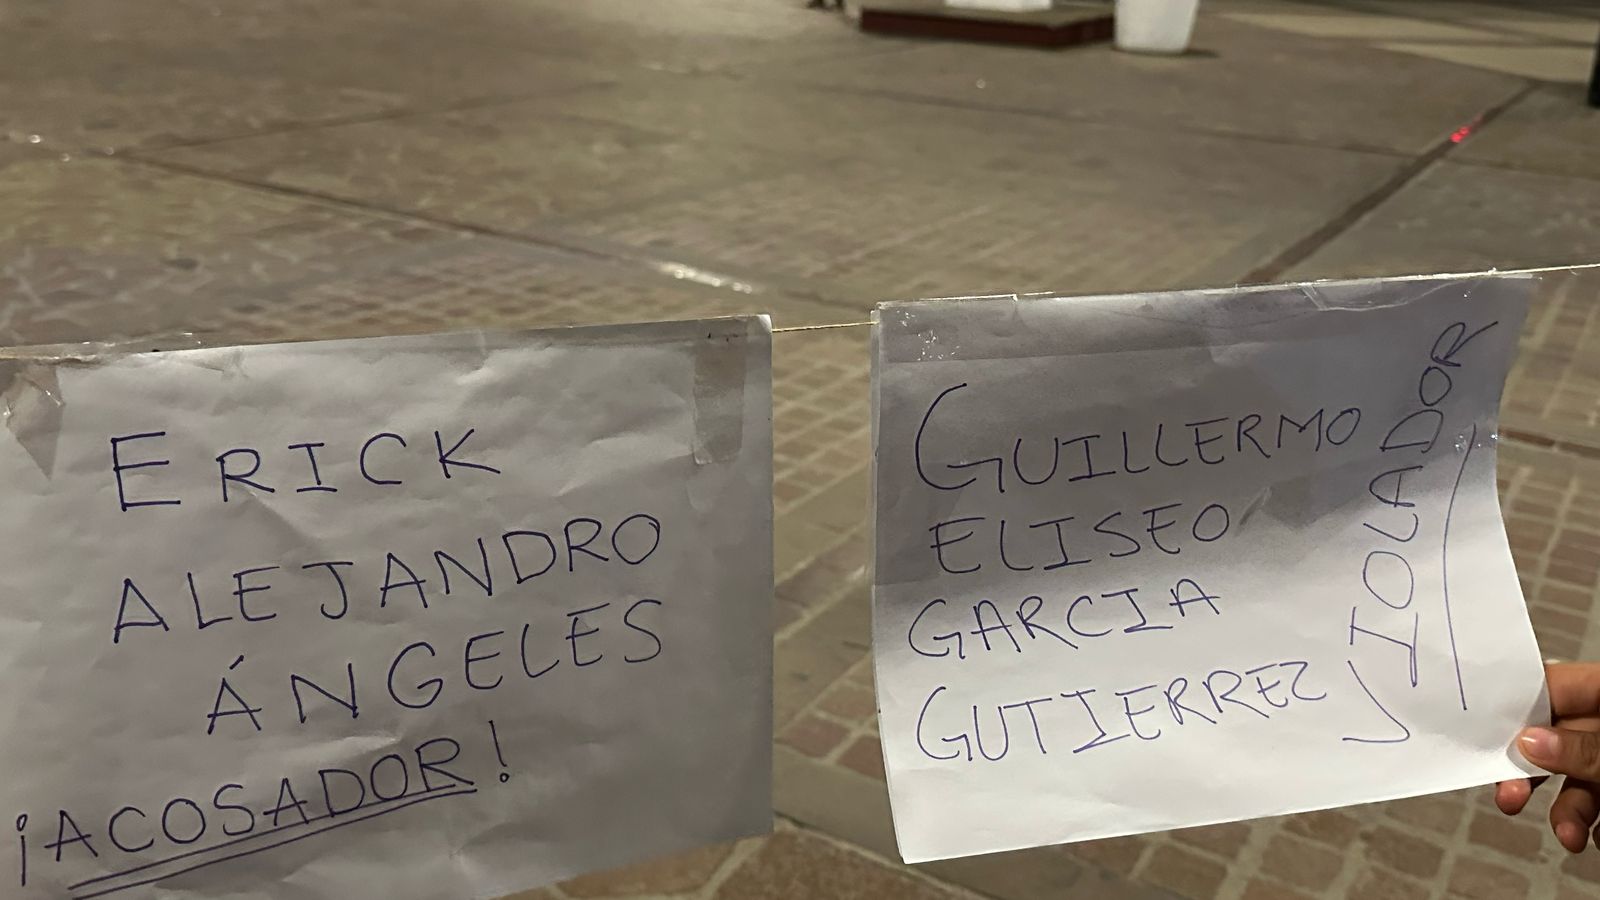 ERICK
ALEJANDRO
ÁNGELES
¡ACOSADOR!
GUILLERMO
ELISEO
GARCIA
GUTIERREZ
VIOLADOR